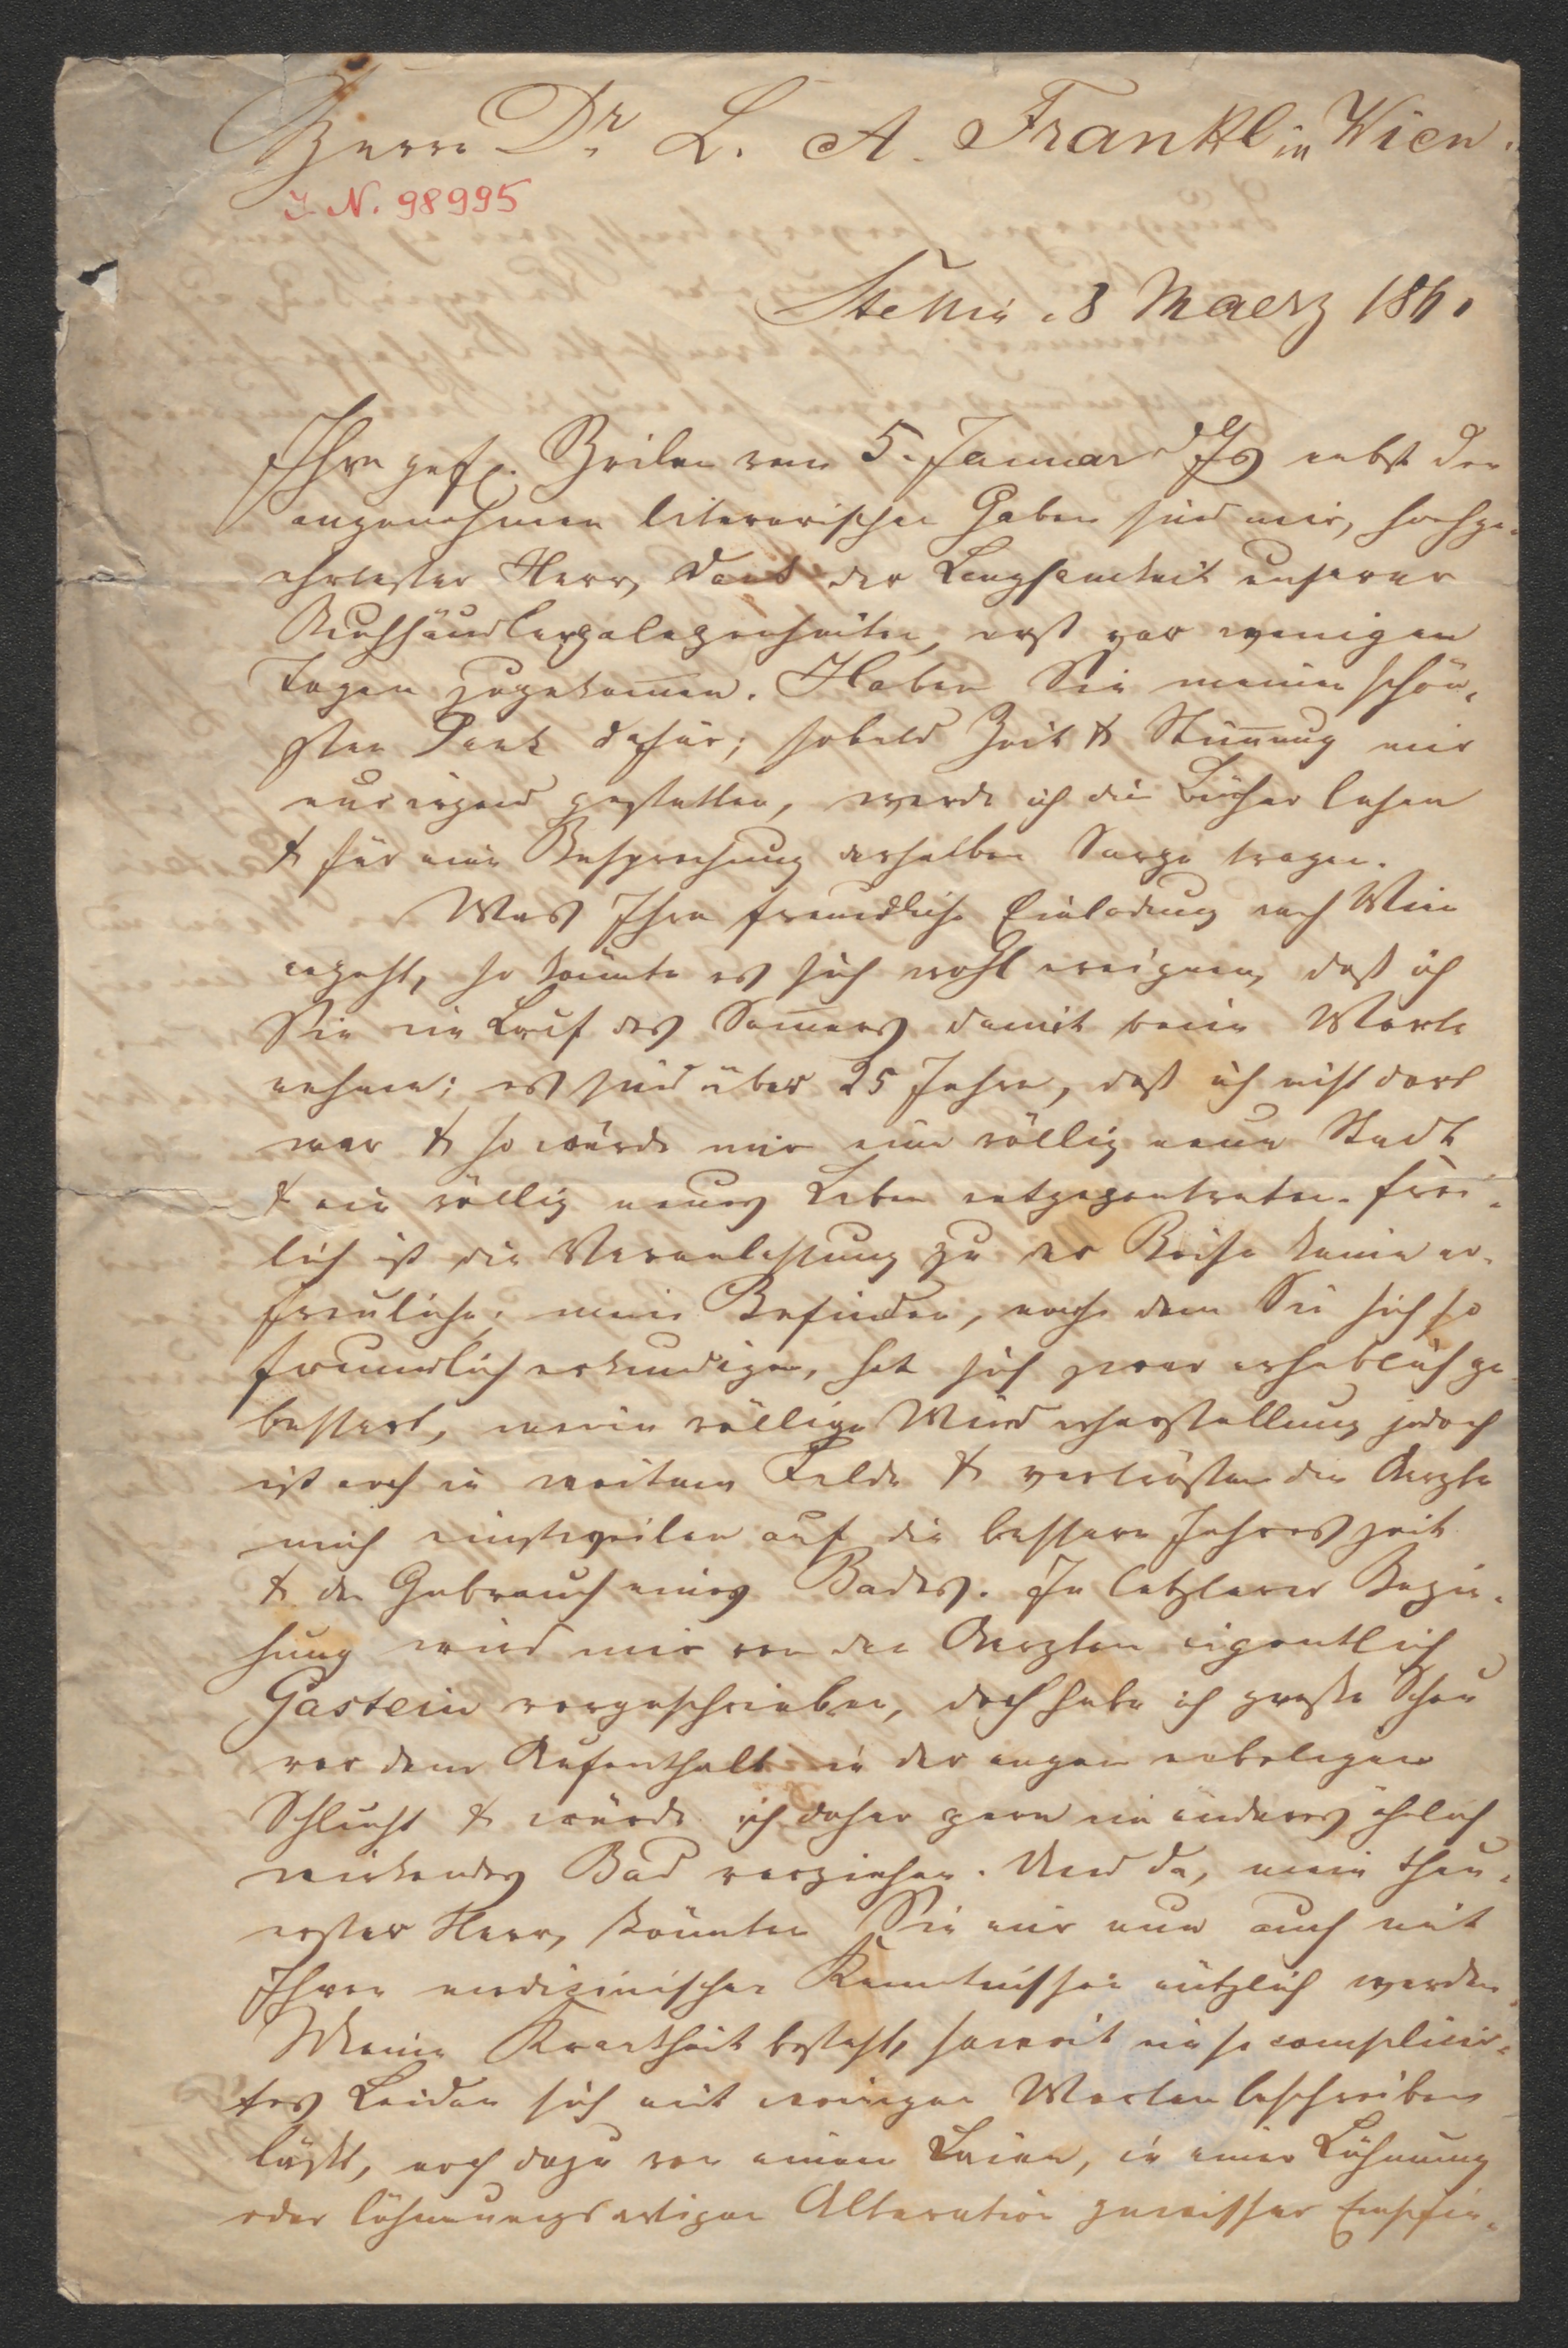 Herrn Dr. L. A. Frankl in Wien.
I. N. 98995
Stettin, 8 Maerz 186
Ihre gefl. Zeilen vom 5. Januar d Js nebst den
angenehmen literarischen Gaben sind mir, hochge-
ehrtester Herr, Dank der Langsamkeit unserer
Buchhändlergelegenheiten, erst vor wenigen
Tagen zugekom̅en. Haben Sie meinen schön-
sten Dank dafür; sobald Zeit & Stim̅ung mir
nur irgend gestatten, werde ich die Bücher lesen
& für eine Besprechung derselben Sorge tragen.
Was Ihre freundliche Einladung nach Wien
angeht, so könnte es sich wohl ereignen, daß ich
Sie im Lauf des Som̅ers damit beim Worte
nehme; es sind über 25 Jahre, daß ich nicht dort
war & so würde mir eine völlig neue Stadt
& ein völlig neues Leben entgegentreten. Frei-
lich ist die Veranlassung zu der Reise keine er-
freuliche; mein Befinden, nach dem Sie sich so
freundlich erkundigen, hat sich zwar erheblich ge
bessert, meine völlige Wiederherstellung jedoch
ist noch in weitem Felde & vertrösten die Aerzte
mich einstweilen auf die bessere Jahreszeit
& den Gebrauch eines Bades. In letzterer Bezie-
hung wird mir von den Aerzten eigentlich
Gastein vorgeschrieben, doch habe ich große Scheu
vor dem Aufenthalt in der engen nebeligen
Schlucht & würde ich daher gern ein anderes ähnlich
wirkendes Bad vorziehen. Und da, mein theu-
erster Herr, könnten Sie mir nun auch mit
Ihren medizinischen Kenntnissen nützlich werden.
Meine Krankheit besteht, soweit ein so complicir-
tes Leiden sich mit wenigen Worten beschreiben
läßt, noch dazu von einem Laien, in einer Lähmung
oder lähmungsartigen Alteration gewisser Empfin-